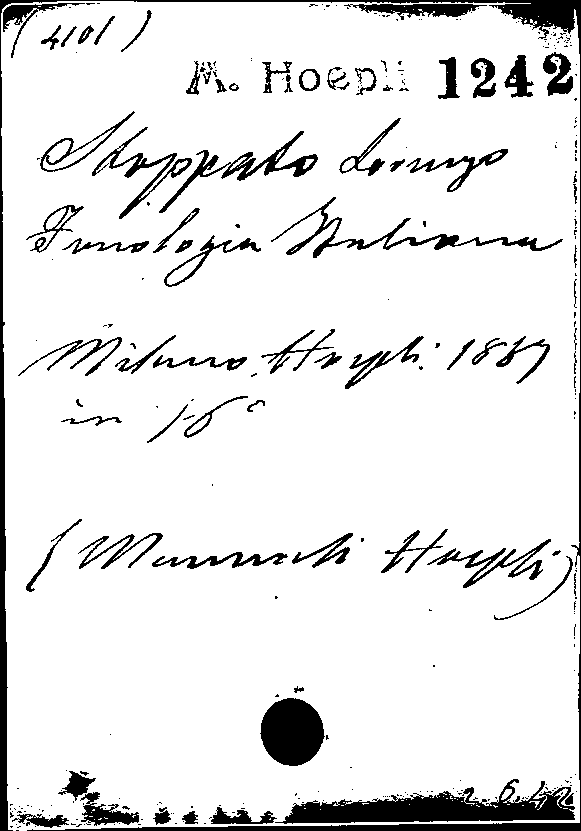 (4101)
M. Hoepli 1242
Stoppato Lorenzo
Fonologia Italiana
Milano, Hoepli. 1887
in 16°
(Manuali Hoepli)
2.6.42